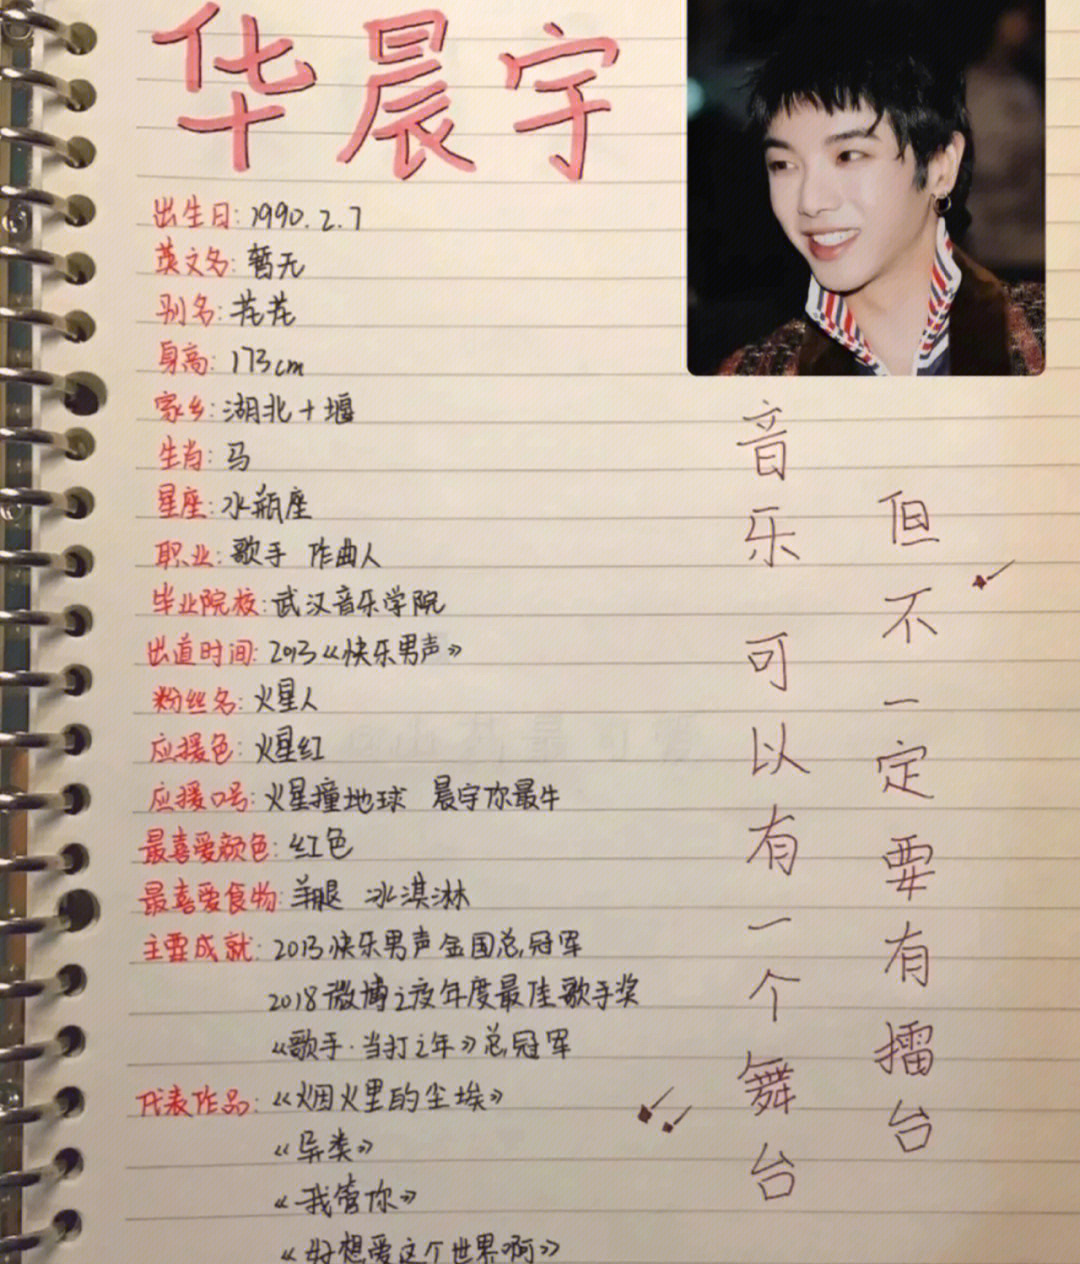 华晨宇
出生日:1990.2.7
英文名:暂无
别名:花花
身高:173cm
家乡:湖北十堰
生肖:马
星座:水瓶座
职业:歌手 作曲人
毕业院校:武汉音乐学院
出道时间:2013《快乐男声》
粉丝名:火星人
应援色:火星红
应援口号:火星撞地球 晨宇你最牛
最喜爱颜色:红色
最喜爱食物:羊腿 冰淇淋
主要成就:2013快乐男声全国总冠军
2018微博之夜年度最佳歌手奖
《歌手·当打之年》总冠军
代表作品:《烟火里的尘埃》
《异类》
《我管你》
《好想爱这个世界啊》
音乐可以有一个舞台
但不一定要有擂台